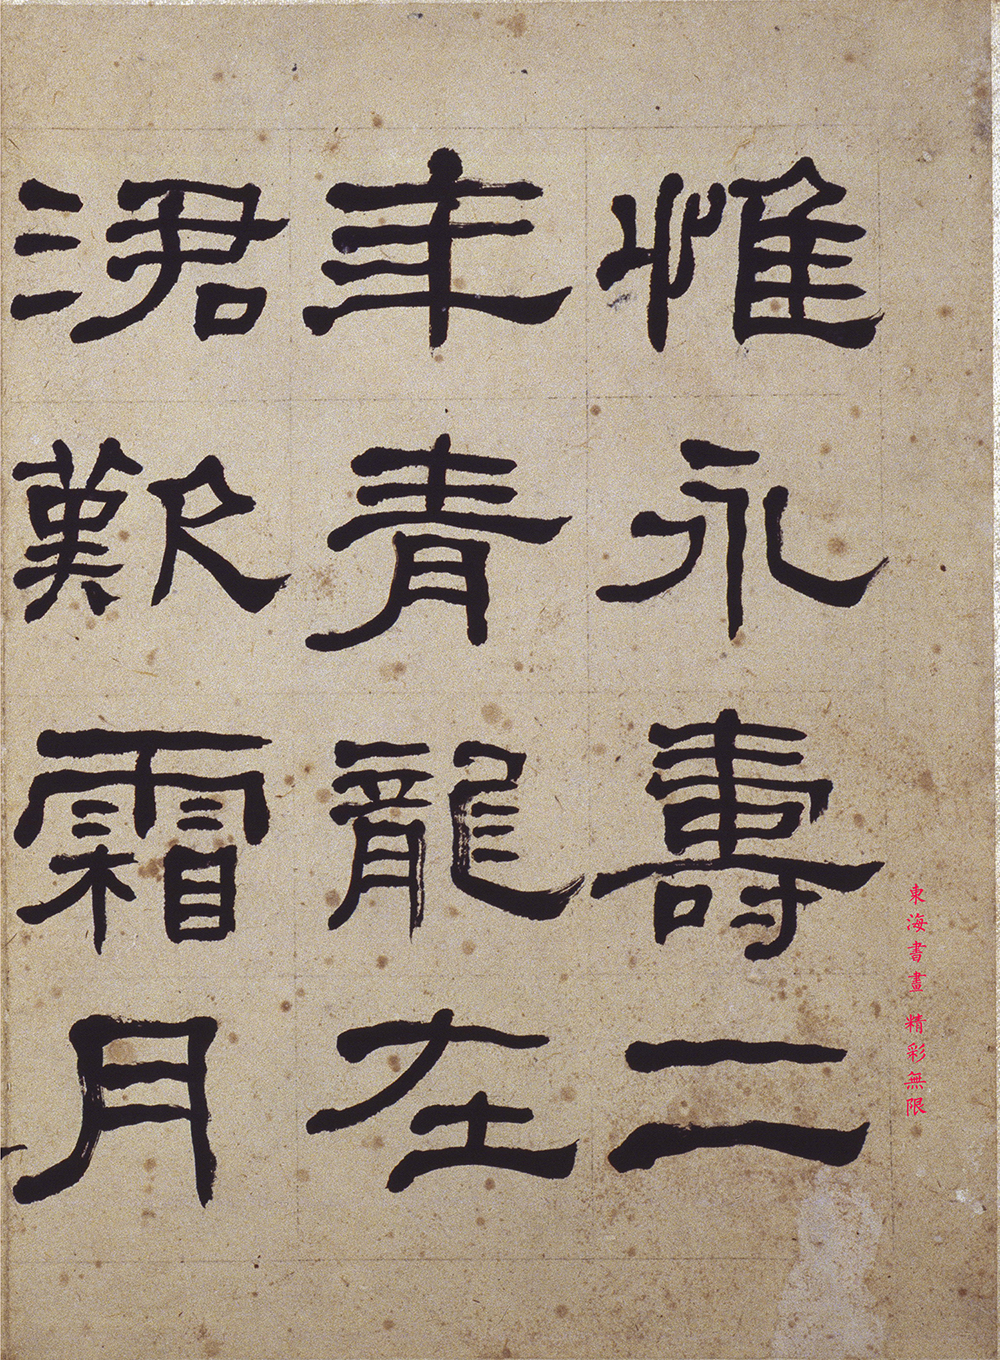 惟永壽二
年青龍在
涒歎霜月
東海書畫 精彩無限